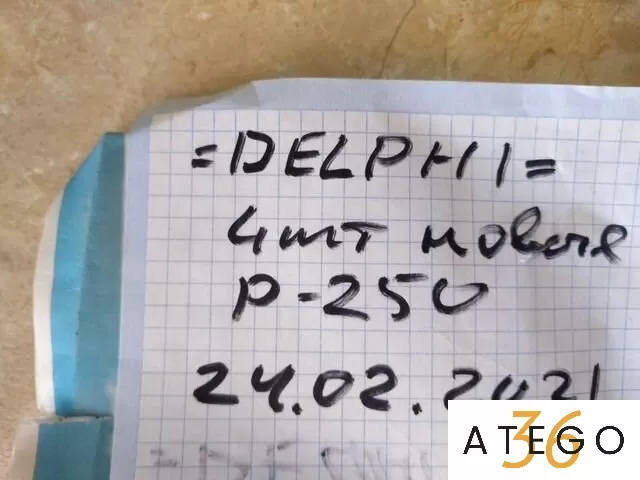 =DELPHI=
4шт новые
P-250
24.02.2021
ATEGO
36